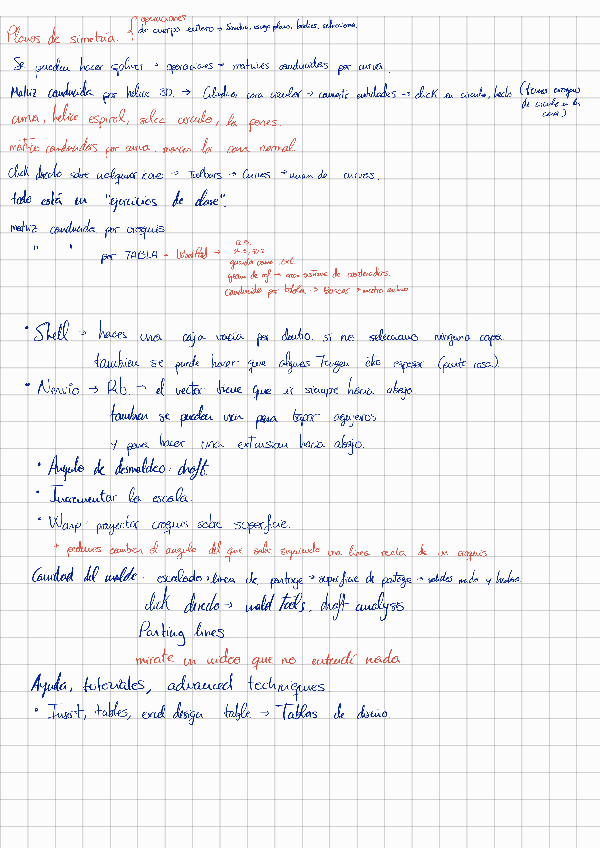 operaciones
Planos de simetria. de cuerpo entero → Simetria, escoge plano, bodies, selecciona.
Se pueden hacer → operaciones → matrices conducidas por curva.
Matriz conducida por helice 3D. → Cilindro, cara circular → convertir entidades → click en circulo, hecho (tienes croquis de circulo en la cara)
curva, helice espiral, selec circulo, la pones.
matriz conducidas por curva. marcar la cara normal.
Click derecho sobre cualquier cosa → Toolbars → Curves → de curvas.
todo está en "ejercicios de clase".
matriz conducida por croquis
" " por TABLA → WordPad →
guardar como .txt
geom de ref → sistema de coordenadas.
conducida por tabla → buscar →
• Shell → haces una caja vacia por dentro. si no selecciono ninguna capa
tambien se puede hacer que algunas Tengan otro espesor (parte rosa)
• Nervio → Rib. → el vector tiene que ir siempre hacia abajo
tambien se pueden usar para tapar agujeros
y para hacer una extension hacia abajo.
• Angulo de desmoldeo. draft.
• Incrementar la escala.
• Wrap. proyectar croquis sobre superficie.
+ podemos cambiar el angulo del que sale siguiendo una linea recta de un croquis
Cavidad del molde. escalado → linea de partage → superficie de partage → solidos nucleo y hembra
click derecho → mold tools, draft analysis
Parting lines
mirate un video que no entendi nada
Ayuda, tutoriales, advanced techniques
• Insert, tables, excel design table → Tablas de diseño